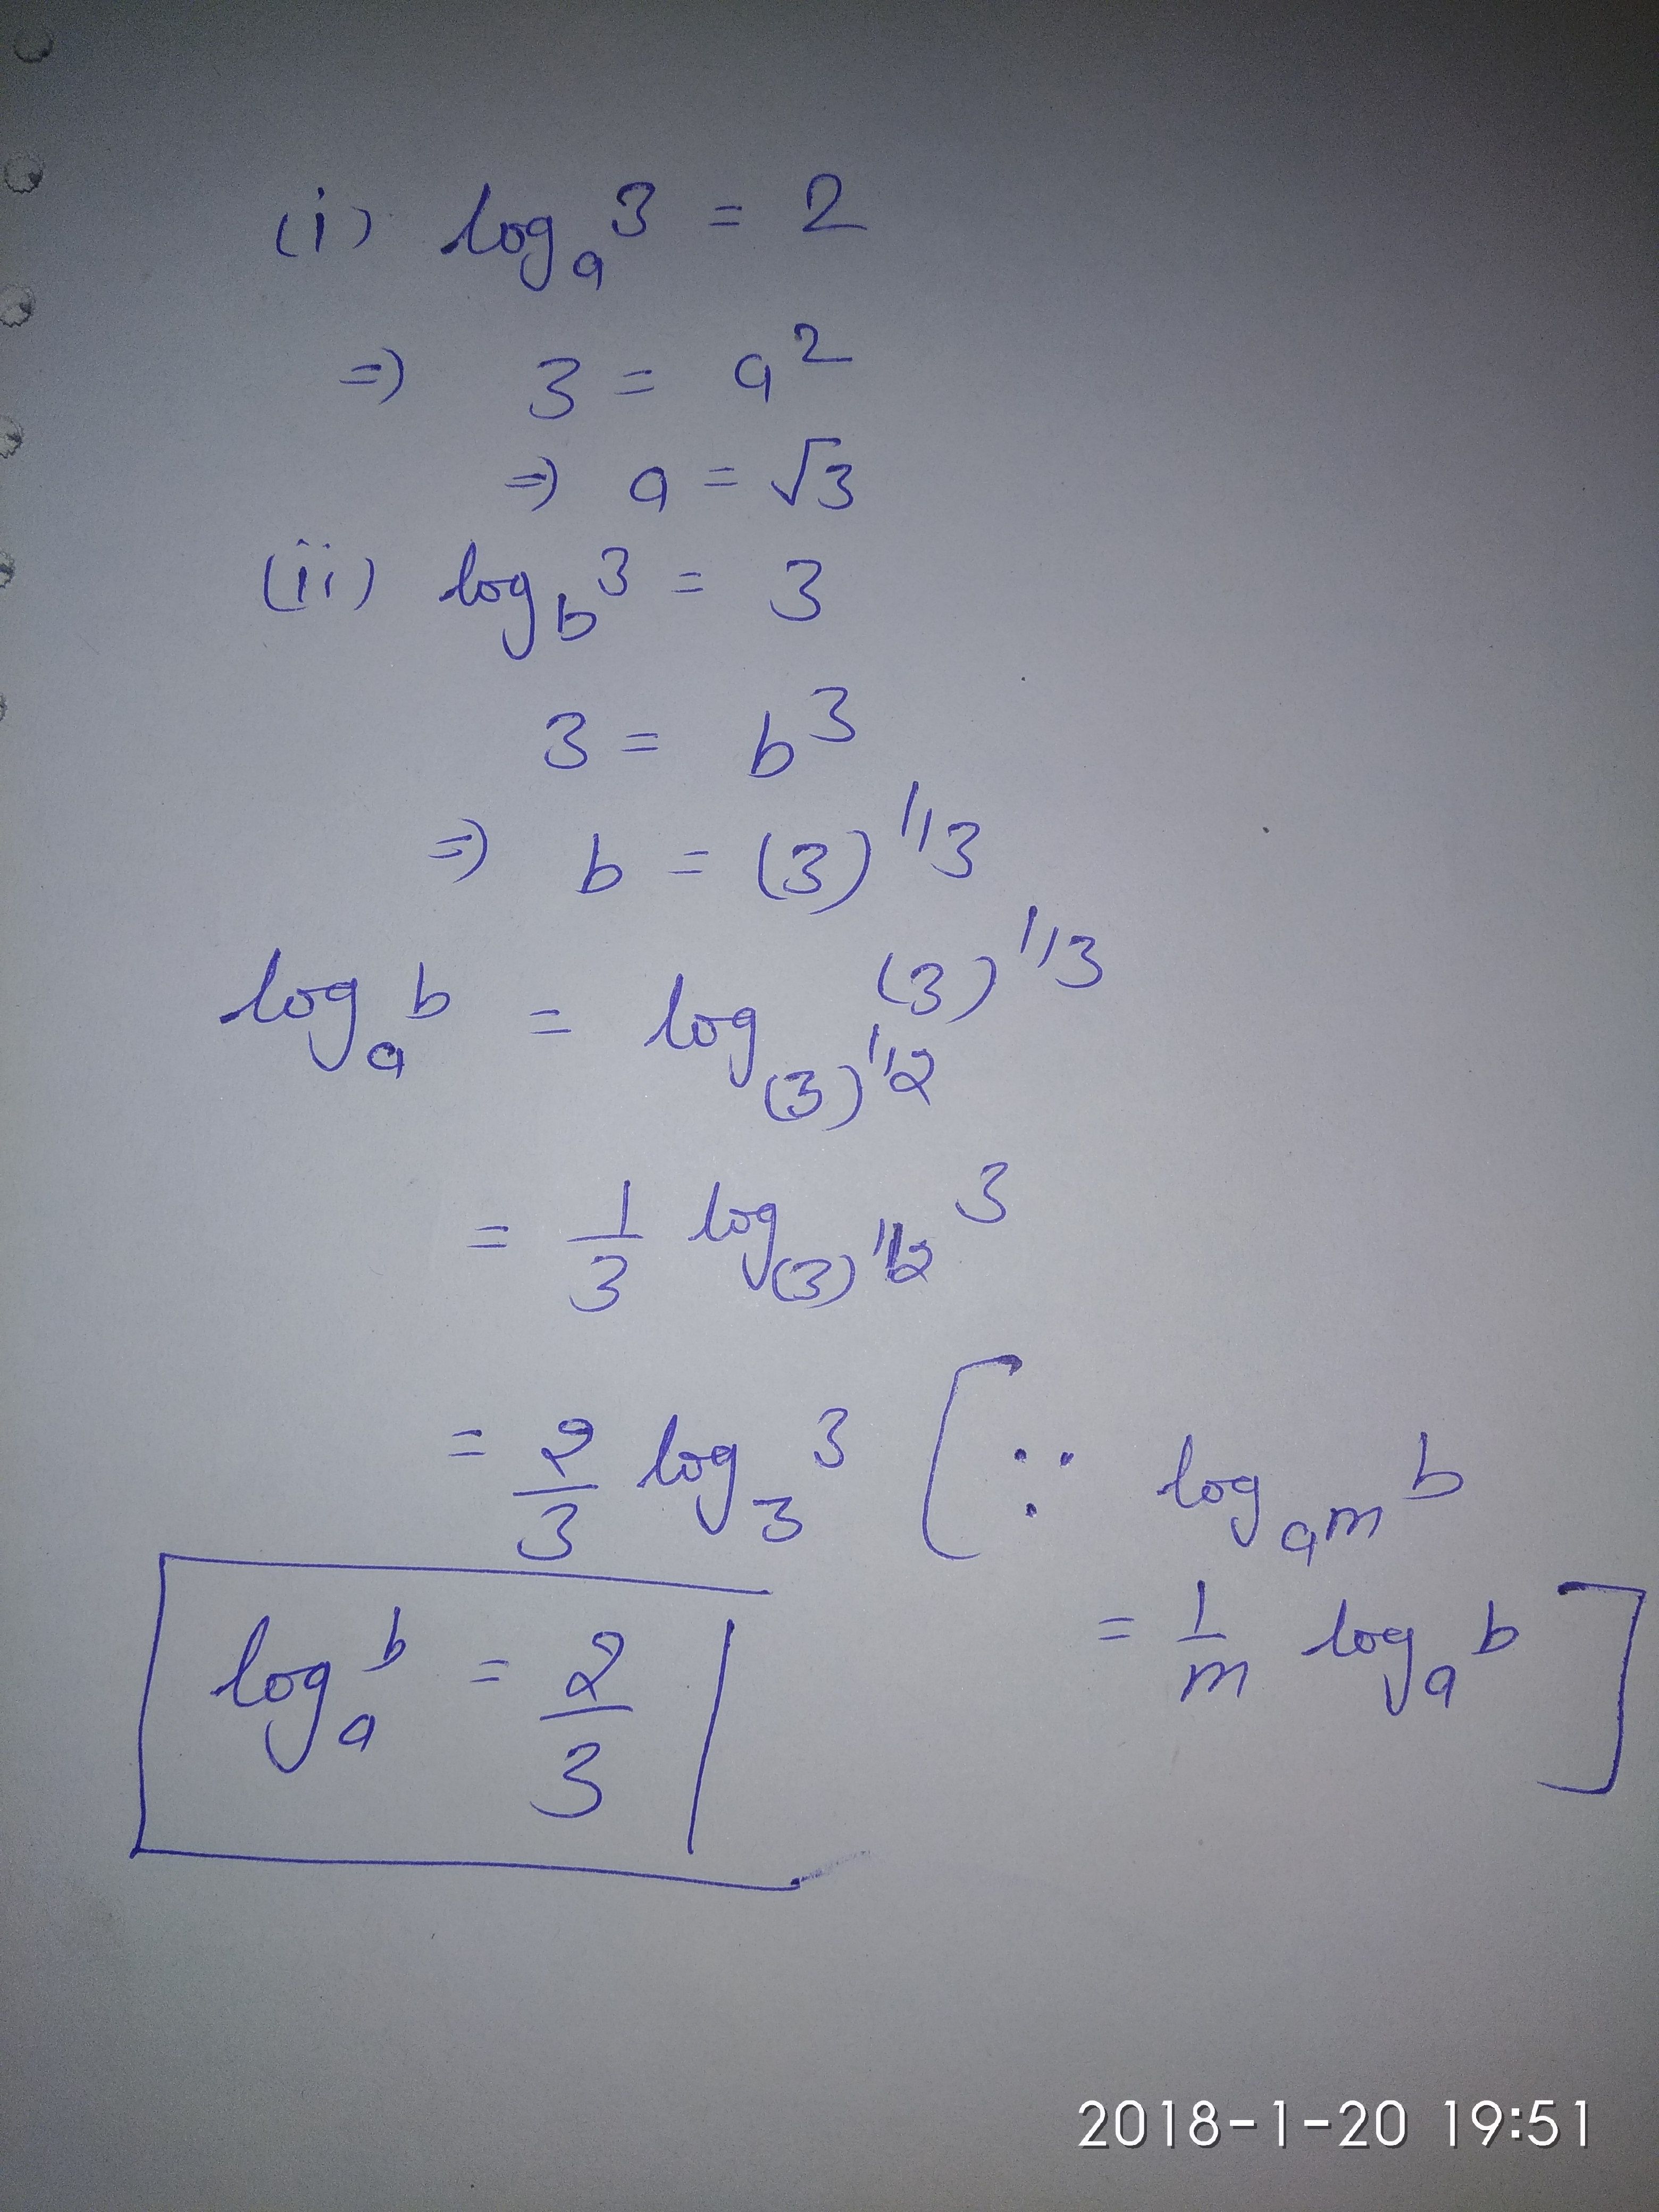 (i) logₐ3 = 2
⇒ 3 = a²
⇒ a = √3
(ii) log_b 3 = 3
3 = b³
⇒ b = (3)^1/3
logₐb = log_(3)^1/2 (3)^1/3
= 1/3 log_(3)^1/2 3
= 2/3 log₃3 [∵ log_a^m b
= 1/m logₐb]
logₐb = 2/3
2018-1-20 19:51